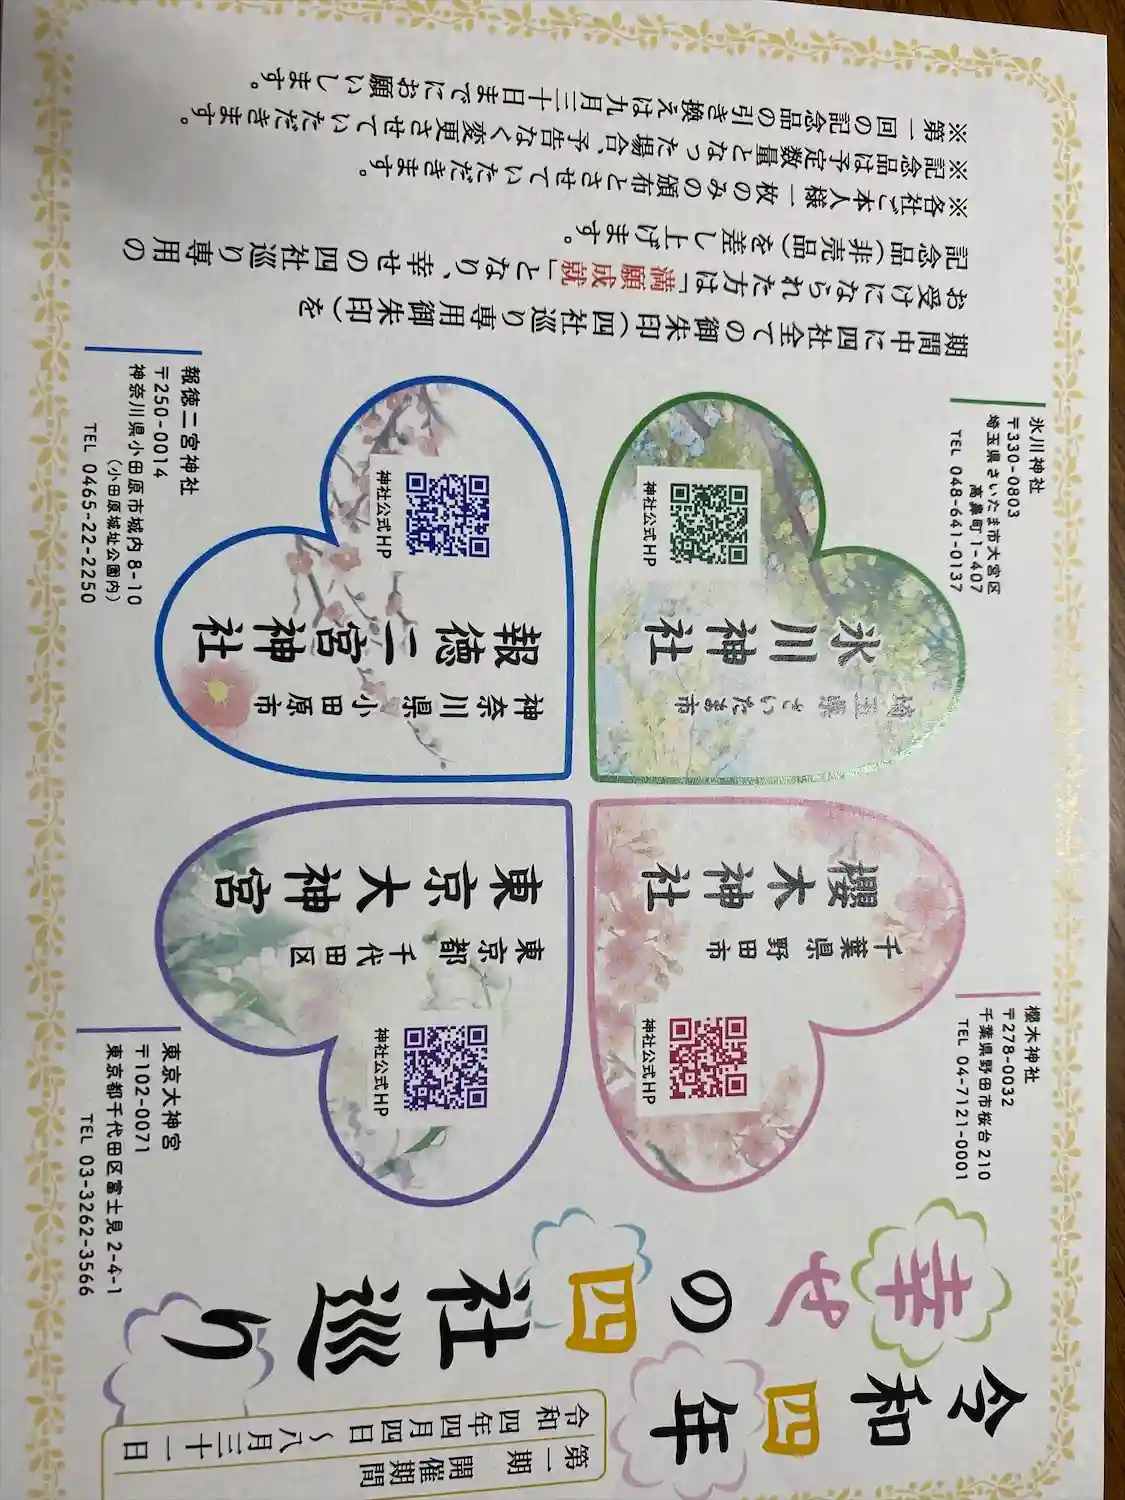 令和四年
幸せの四社巡り
第一期 開催期間
令和四年四月四日〜八月三十一日
櫻木神社
千葉県野田市
神社公式HP
櫻木神社
〒278-0032
千葉県野田市桜台210
TEL 04-7121-0001
東京大神宮
東京都千代田区
神社公式HP
東京大神宮
〒102-0071
東京都千代田区富士見2-4-1
TEL 03-3262-3566
氷川神社
埼玉県さいたま市
神社公式HP
氷川神社
〒330-0803
埼玉県さいたま市大宮区
高鼻町1-407
TEL 048-641-0137
報徳二宮神社
神奈川県小田原市
神社公式HP
報徳二宮神社
〒250-0014
神奈川県小田原市城内8-10
(小田原城址公園内)
TEL 0465-22-2250
期間中に四社全ての御朱印(四社巡り専用御朱印)を
お受けになられた方は「満願成就」となり、幸せの四社巡り専用の
記念品(非売品)を差し上げます。
※各社ご本人様一枚のみの頒布とさせていただきます。
※記念品は予定数量となった場合、予告なく変更させていただきます。
※第一回の記念品の引き換えは九月三十日までにお願いします。